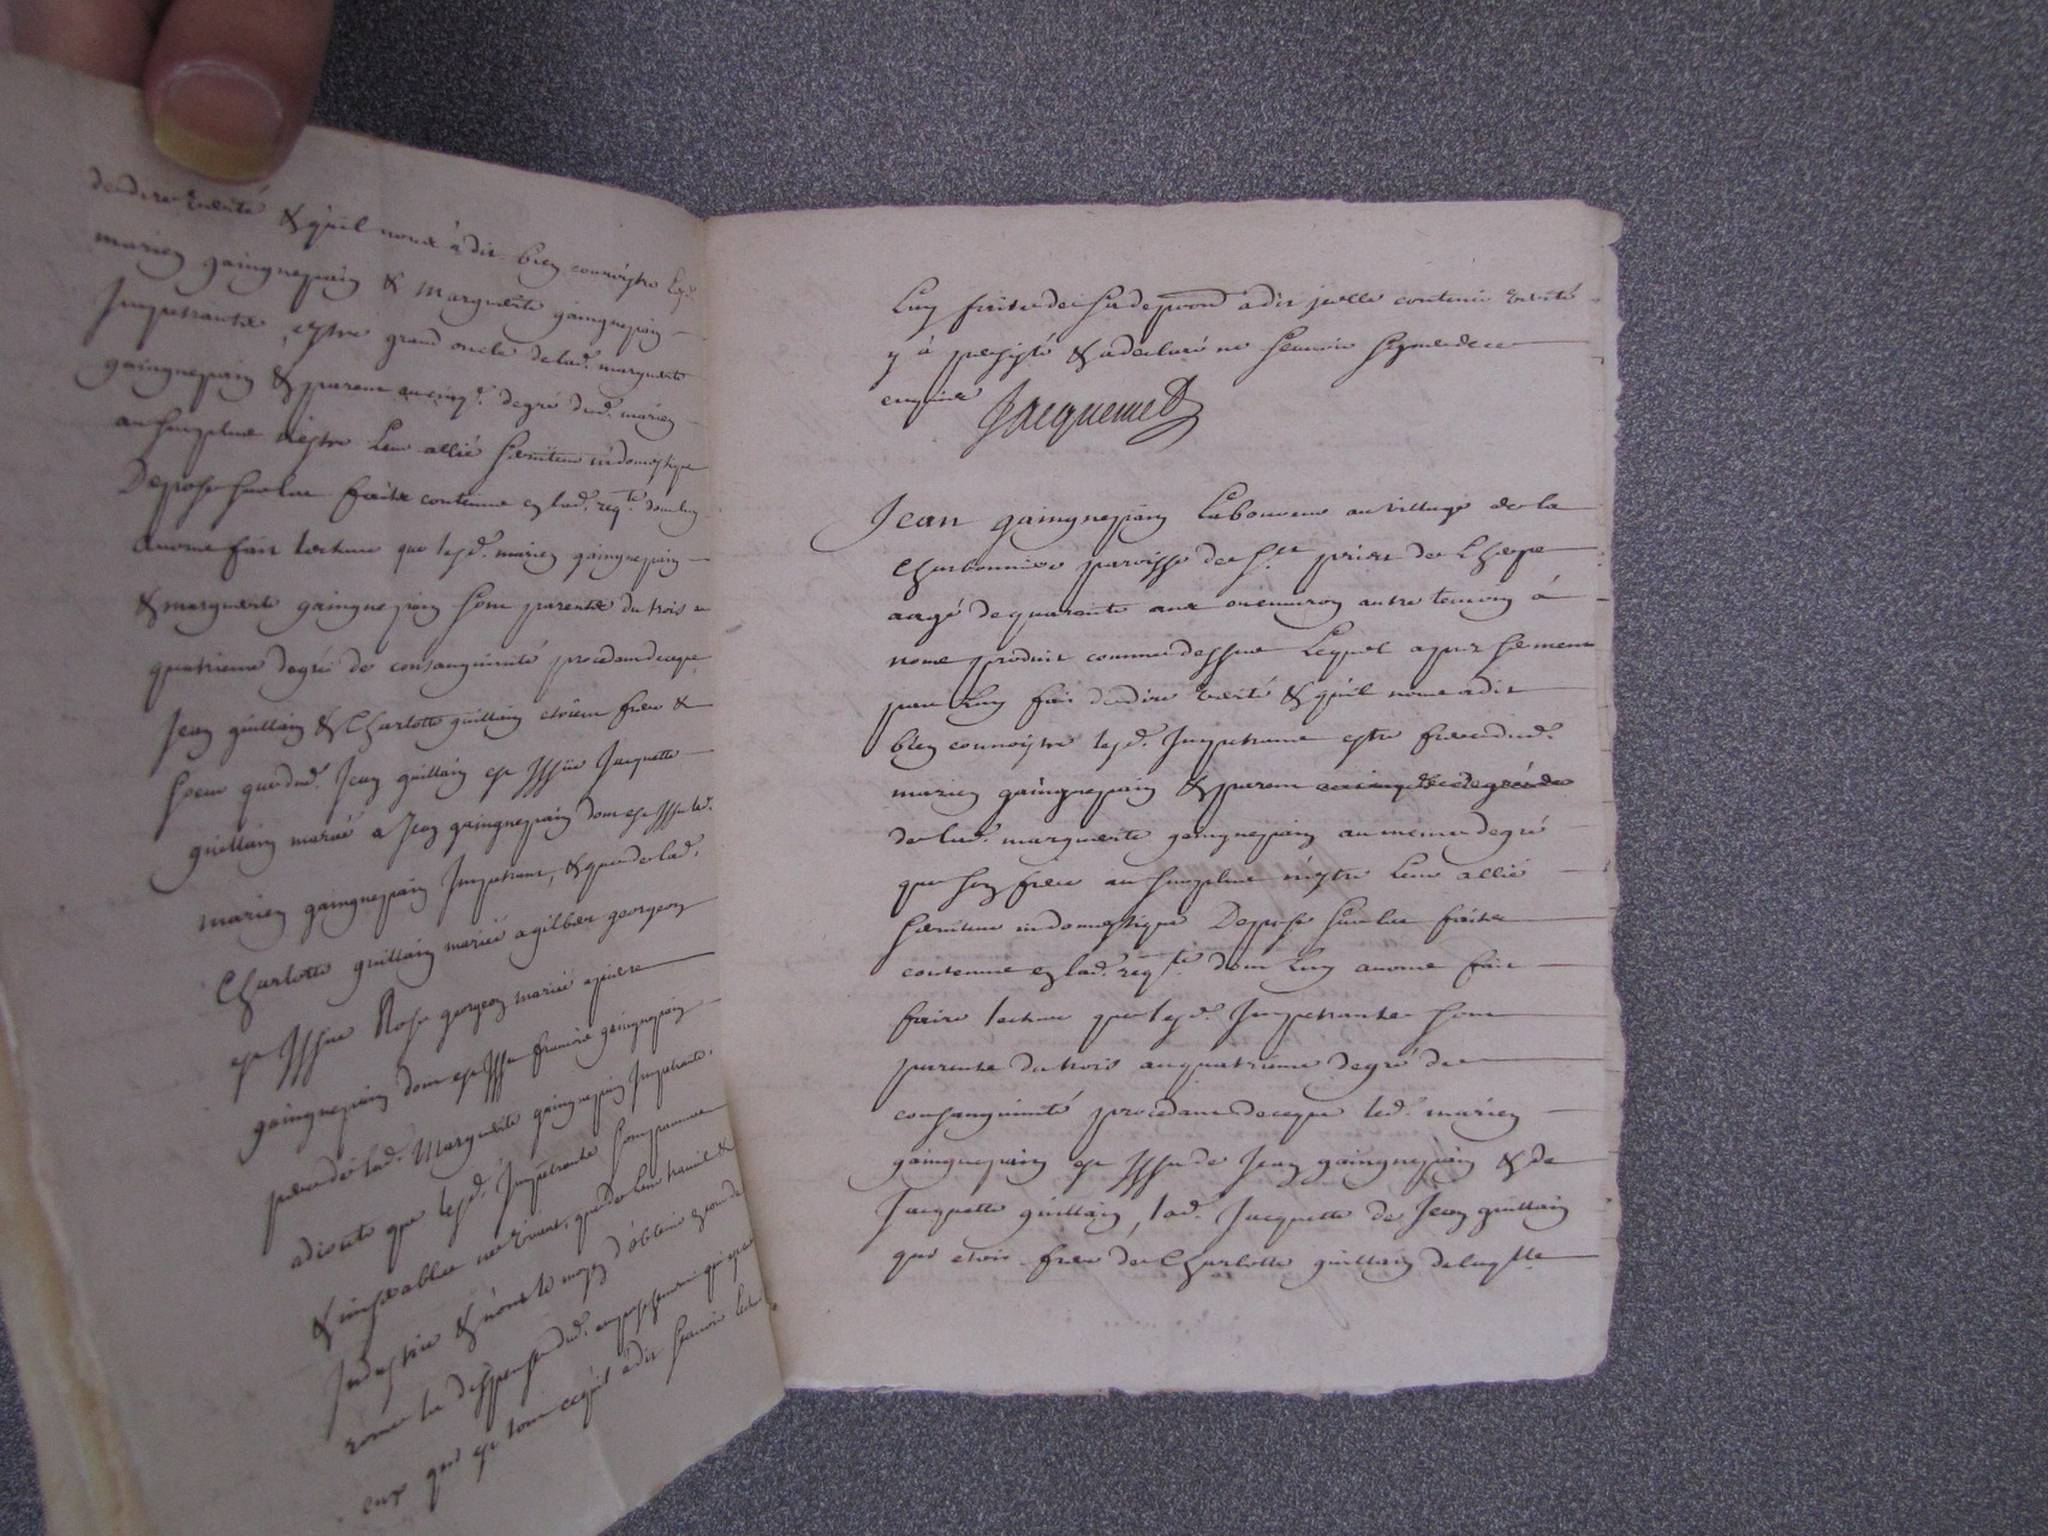 de dire verité & qu'il nous à dit bien connoistre lesd.
marien gaingnepain & marguerite gaingnepain
Impetrants, estre grand oncle de lad. marguerite
gaingnepain & parent au cinq.e degré dud. marien
au surplus n'estre leur allié serviteur ni domestique
Depose sur les faits contenus en lad. req.te dont luy
avons fait lecture que lesd. marien gaingnepain
& marguerite gaingnepain sont parents du trois au
quatrieme degré de consanguinité procedant de ce que
Jean guillain & Charlotte guillain etoient frere &
soeur que dud. Jean guillain est Issüe Jacquette
guillain mariée a Jean gaingnepain dont est Issu led.
marien gaingnepain Impetrant, & que de lad.
Charlotte guillain mariée a gilbert georgeon
est Issue Rose georgeon mariée a pierre
gaingnepain dont est Issu francois gaingnepain
pere de lad. Marguerite gaingnepain Impetrante.
adioute que lesd. Impetrants sont pauvres
& miserables ne vivant, que de leur travail &
Industrie & n'ont le moyen d'obtenir en cour de
rome la dispense dud. empeschement qui est entre
eux qui est tout ce qu'il à dit scavoir lecture
Luy faite de sa deposition a dit jcelle contenir verité
y à persisté & a declaré ne scavoir signer de ce
enquis Jacquemet
Jean gaingnepain Laboureur au village de la
Charbonniere paroisse de S.t priest de
aagé de quarante ans ou environ autre temoin à
nous produit comme dessus Lequel apres serment
par Luy fait de dire verité & qu'il nous a dit
bien connoistre lesd. Impetrants estre frere dud.
marien gaingnepain & parent au cinq.e degré de
de lad. marguerite gaingnepain au meme degré
que son frere au surplus n'estre leur allié
serviteur ni domestique Depose sur les faits
contenus en lad. req.te dont Luy avons fait
faire lecture que lesd. Impetrants sont
parents du trois au quatrieme degré de
consanguinité procedant de ce que led. marien
gaingnepain est Issu de Jean gaingnepain & de
Jacquette guillain, lad. Jacquette de Jean guillain
qui etoit frere de Charlotte guillain de laq.lle